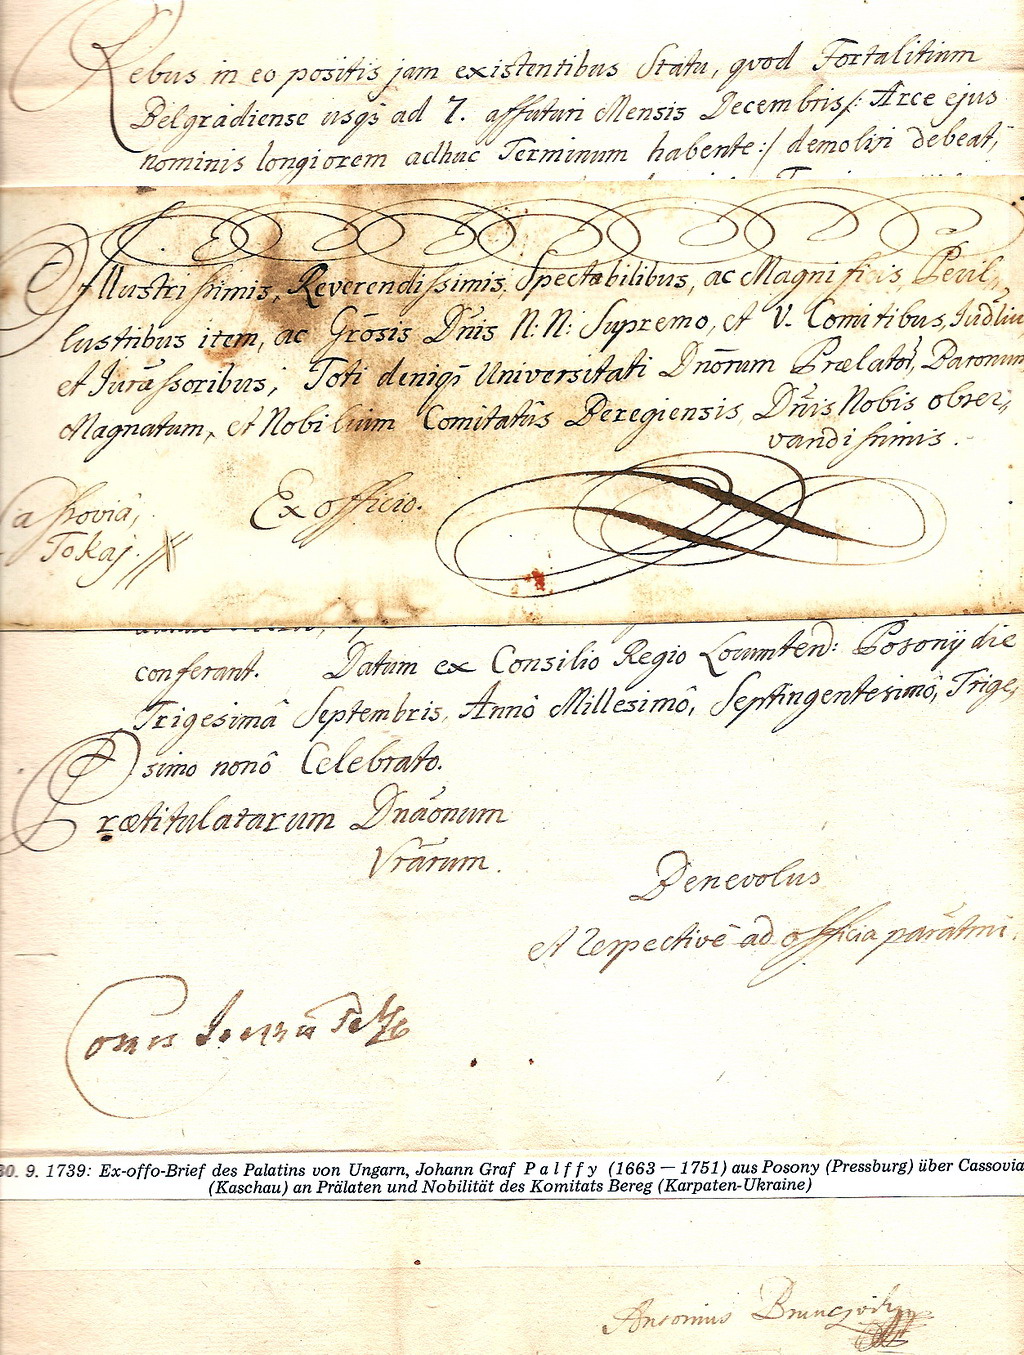 Rebus in eo positis jam existentibus Statu, quod Fortalitium
Belgradiense usq̃ ad 7. affuturi Mensis Decembris /: Arce ejus
nominis longiorem adhuc Terminum habente :/ demoliri debeat,
Illustrissimis, Reverendissimis, Spectabilibus, ac Magnificis, Peril,,
lustribus item, ac Grõsis Dñis N: N: Supremo, et V. Comitibus, Iudliu
et Jurãssoribus; Toti deniq̃ Universitati Dnõrum Prælator, Baronum
Magnatum, et Nobilium Comitatûs Beregiensis, Dñis Nobis obser,,
vandissimis.
Ex officio.
Cassoviâ,
Tokaj.
conferant. Datum ex Consilio Regio Locumtend: Posonij die
Trigesimâ Septembris, Annô Millesimô, Septingentesimô, Trige,
simo nonô Celebrato.
Prætitulatarum Dnãonum
Vrãrum.
Benevolus
et respectivè ad officia parãtmi
Comes Joannes Palffy
30. 9. 1739: Ex-offo-Brief des Palatins von Ungarn, Johann Graf Palffy (1663 — 1751) aus Posony (Pressburg) über Cassovia
(Kaschau) an Prälaten und Nobilität des Komitats Bereg (Karpaten-Ukraine)
Antonius Brunczvik